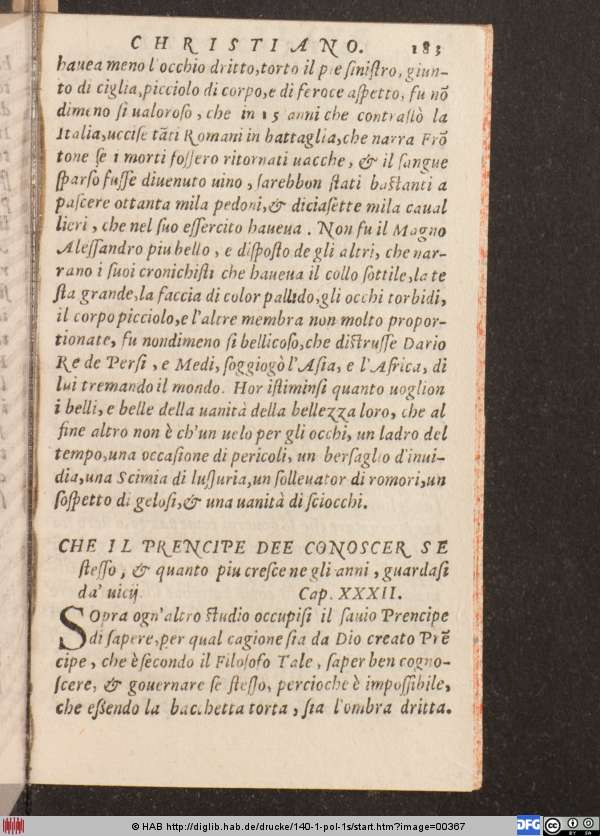 CHRISTIANO. 183
hauea meno l'occhio dritto,torto il pie sinistro, giun-
to di ciglia,picciolo di corpo,e di feroce aspetto, fu nõ
dimeno si ualoroso, che in 15 anni che contrastò la
Italia,uccise tãti Romani in battaglia,che narra Frõ
tone se i morti fossero ritornati uacche, & il sangue
sparso fusse diuenuto uino, sarebbon stati bastanti a
pascere ottanta mila pedoni,& diciasette mila caual
lieri, che nel suo essercito haueua. Non fu il Magno
Alessandro piu bello, e disposto de gli altri, che nar-
rano i suoi cronichisti che haueua il collo sottile,la te
sta grande,la faccia di color pallido,gli occhi torbidi,
il corpo picciolo,e l'altre membra non molto propor-
tionate, fu nondimeno si bellicoso,che distrusse Dario
Re de Persi, e Medi, soggiogò l'Asia, e l'Africa, di
lui tremando il mondo. Hor istiminsi quanto uoglion
i belli, e belle della uanità della bellezza loro, che al
fine altro non è ch'un uelo per gli occhi, un ladro del
tempo,una occasione di pericoli, un bersaglio d'inui-
dia,una Scimia di lussuria,un solleuator di romori,un
sospetto di gelosi,& una uanità di sciocchi.
CHE IL PRENCIPE DEE CONOSCER SE
stesso, & quanto piu cresce ne gli anni, guardasi
da' uicij. Cap. XXXII.
SOpra ogn'altro studio occupisi il sauio Prencipe
di sapere,per qual cagione sia da Dio creato Prē
cipe, che è secondo il Filosofo Tale, saper ben cogno-
scere, & gouernare se stesso, percioche è impossibile,
che essendo la bacchetta torta, sia l'ombra dritta.
© HAB http://diglib.hab.de/drucke/140-1-pol-1s/start.htm?image=00367
DFG
cc BY SA